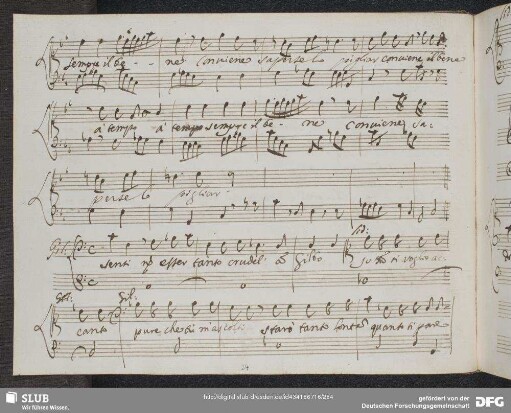 Sempre il be - - ne conviene saperselo pigliar conviene il bene
a tempo a tempo sempre il be - ne conviene sa
perselo pigliar
senti non esser tanto crudel Silvio
canto pure che tu m'ascolti starò tanto lontan quanto ti pare
SLUB
Wir führen Wissen.
http://digital.slub-dresden.de/id434166716/284
gefördert von der
Deutschen Forschungsgemeinschaft
DFG